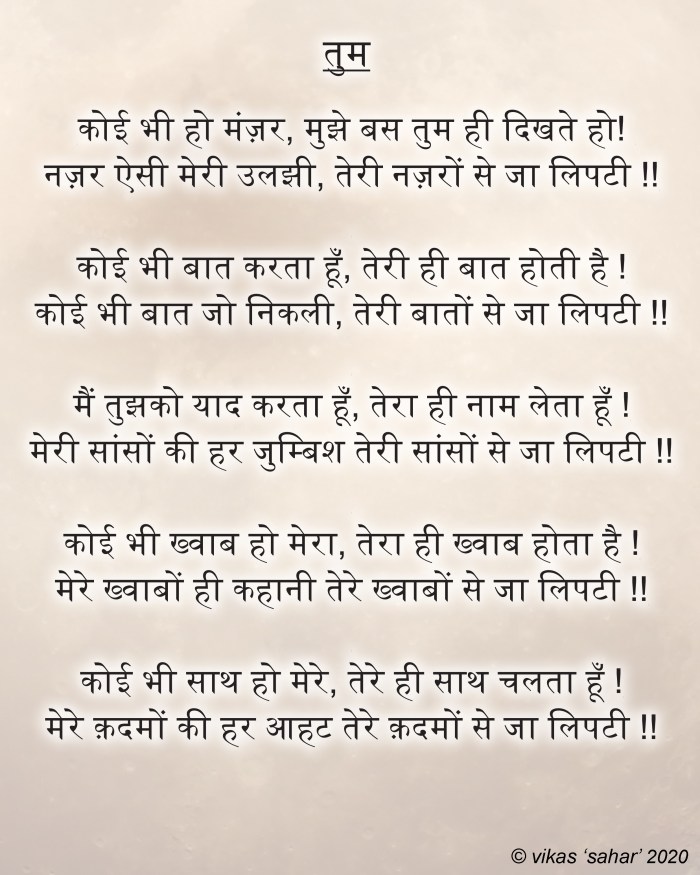 तुम
कोई भी हो मंज़र, मुझे बस तुम ही दिखते हो!
नज़र ऐसी मेरी उलझी, तेरी नज़रों से जा लिपटी !!
कोई भी बात करता हूँ, तेरी ही बात होती है !
कोई भी बात जो निकली, तेरी बातों से जा लिपटी !!
मैं तुझको याद करता हूँ, तेरा ही नाम लेता हूँ !
मेरी सांसों की हर जुम्बिश तेरी सांसों से जा लिपटी !!
कोई भी ख्वाब हो मेरा, तेरा ही ख्वाब होता है !
मेरे ख्वाबों ही कहानी तेरे ख्वाबों से जा लिपटी !!
कोई भी साथ हो मेरे, तेरे ही साथ चलता हूँ !
मेरे क़दमों की हर आहट तेरे क़दमों से जा लिपटी !!
© vikas ‘sahar’ 2020